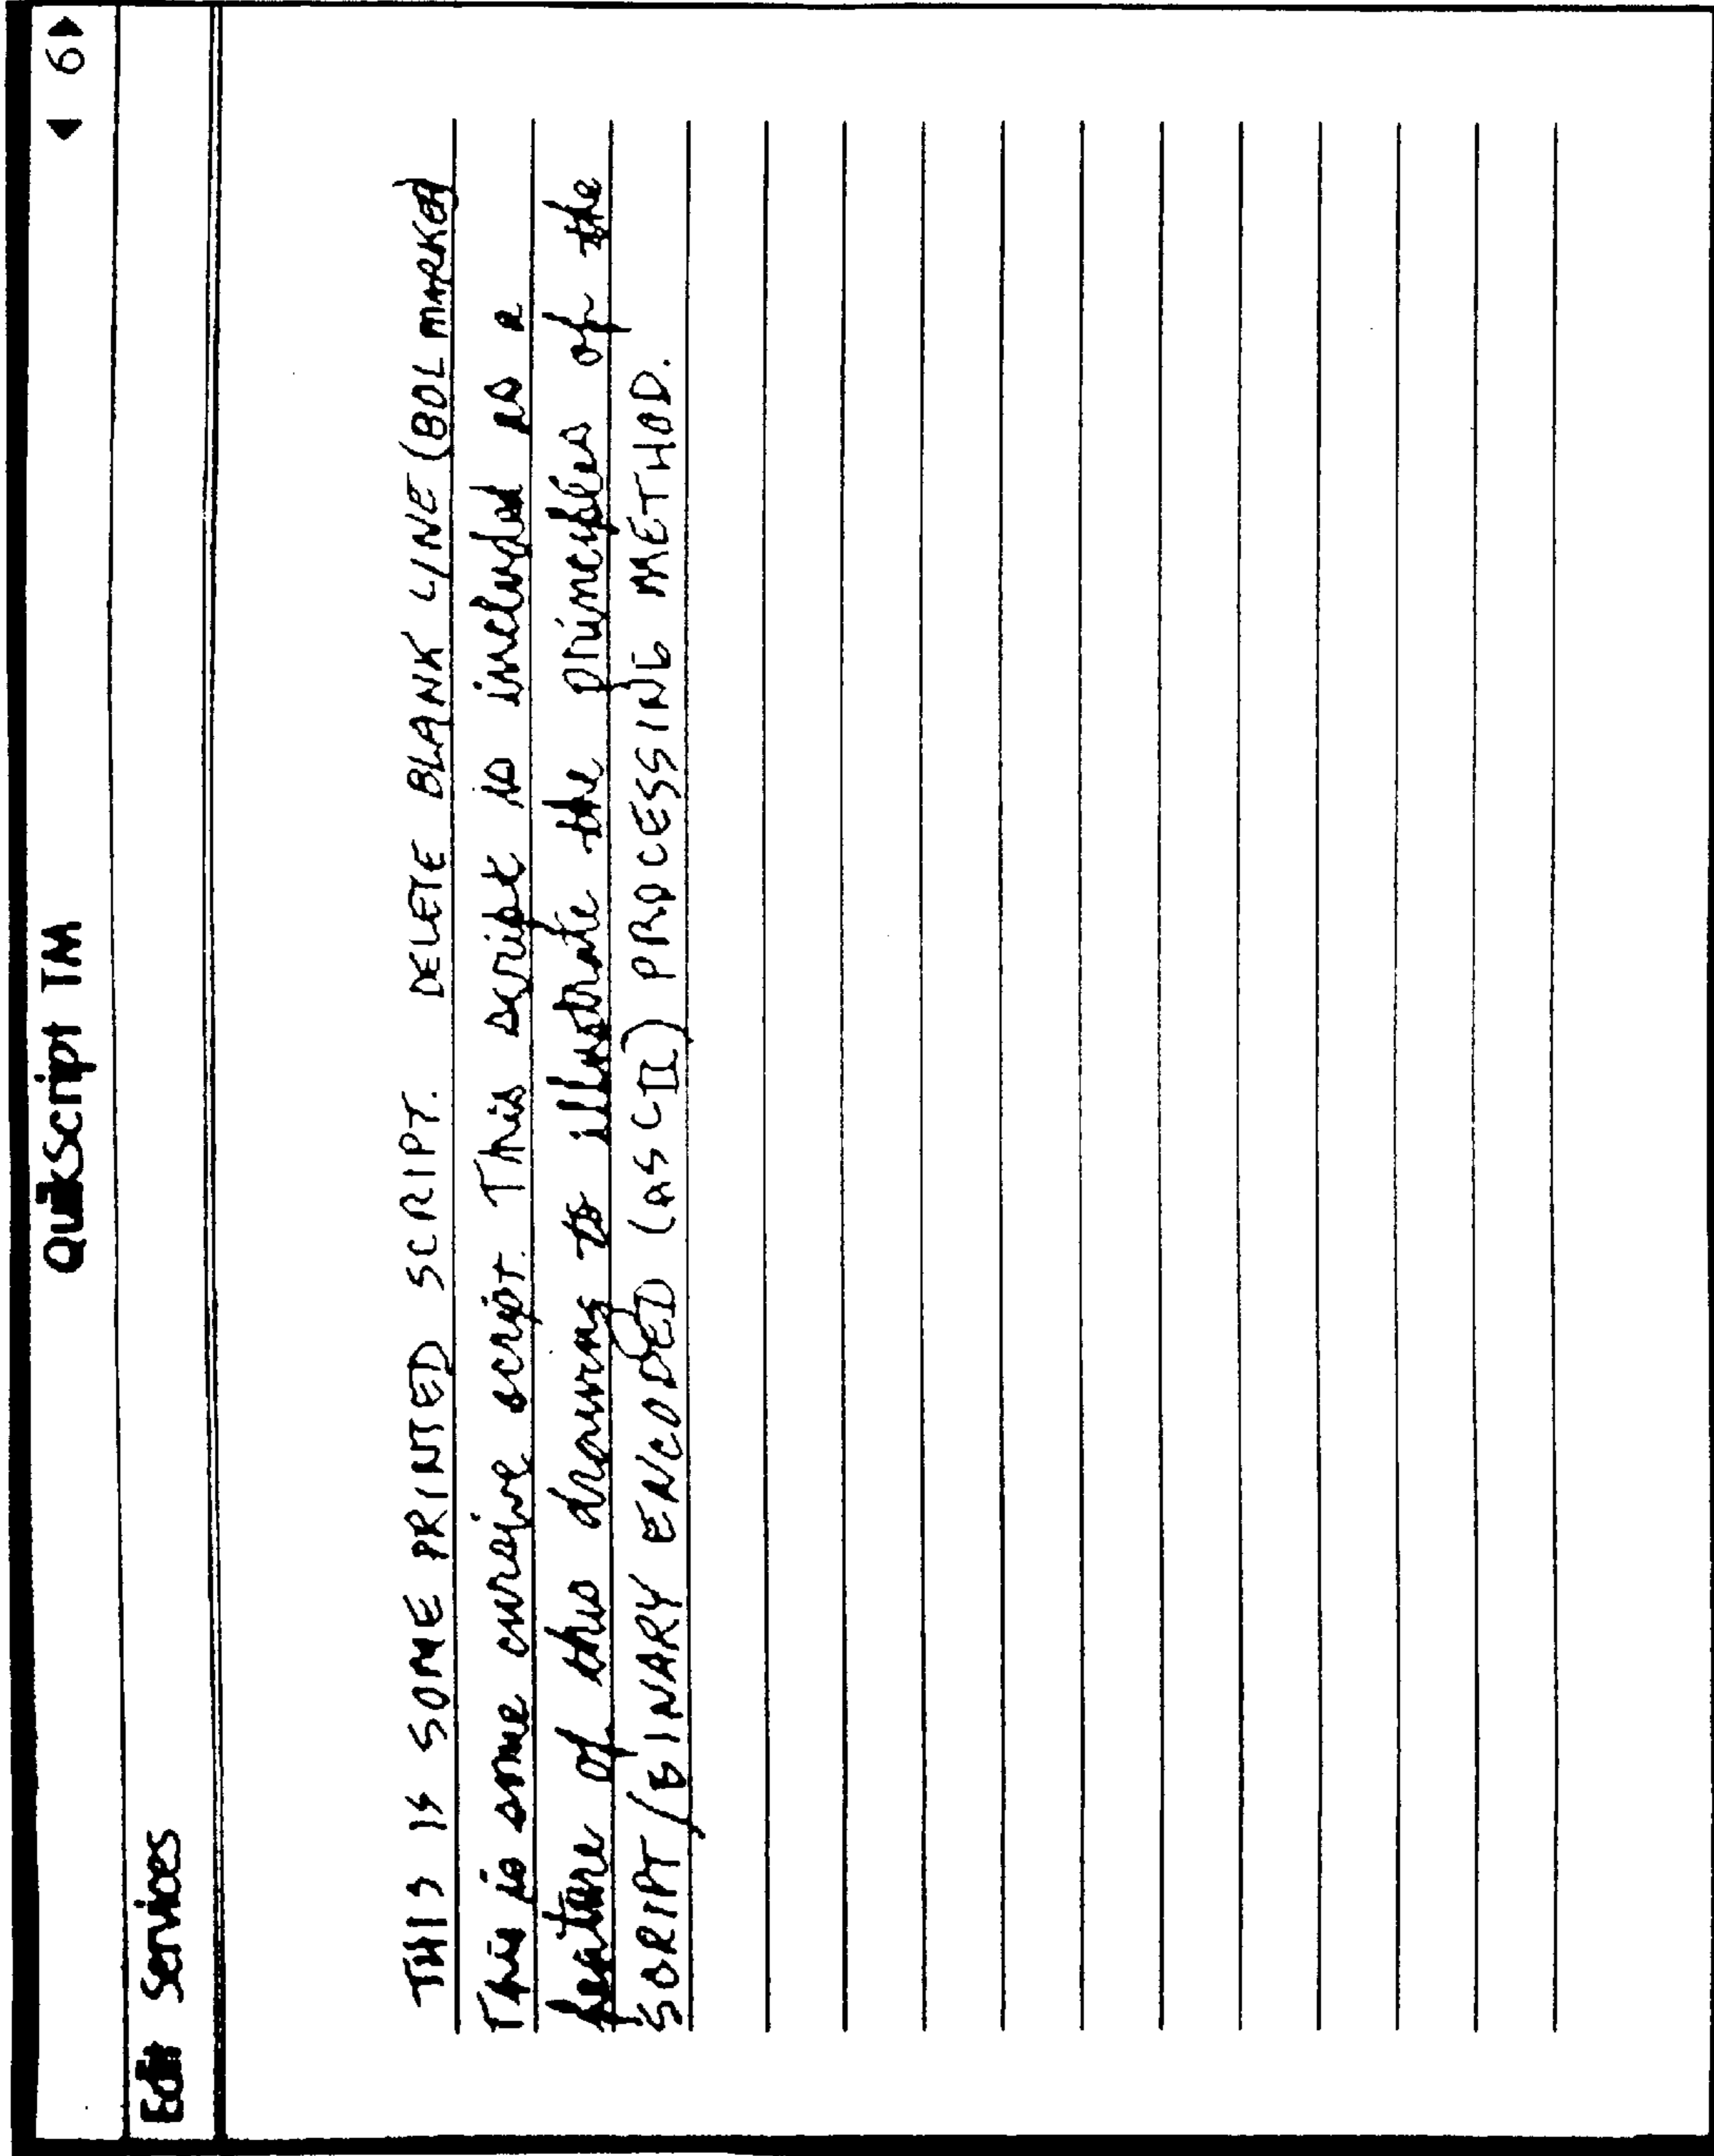 QuikScript TM
◀ 6 ▶
Edit Services
THIS IS SOME PRINTED SCRIPT. DELETE BLANK LINE (BOL MARKED
This is some cursive script. This script is included as a
feature of this drawing to illustrate the principles of the
SCRIPT/BINARY ENCODED (ASCII) PROCESSING METHOD.